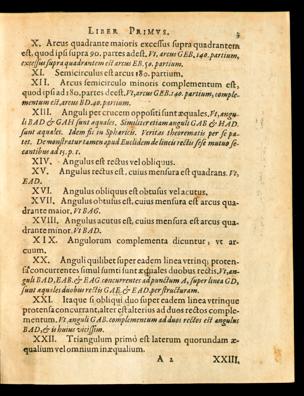 LIBER PRIMVS. 3
X. Arcus quadrante maioris excessus supra quadrantem
est, quod ipsi supra 90. partes adest. Vt, arcus GEB. 140. partium,
excessus supra quadrantem est arcus EB. 50. partium.
XI. Semicirculus est arcus 180. partium.
XII. Arcus semicirculo minoris complementum est,
quod ipsi ad 180. partes deest. Vt, arcus GEB. 140. partium, comple-
mentum est, arcus BD. 40. partium.
XIII. Anguli per crucem oppositi sunt æquales. Vt, angu-
li BAD & GAH sunt æquales. Similiter etiam anguli GAB & HAD.
sunt æquales. Idem fit in Sphæricis. Veritas theorematis per se pa-
tet. Demonstratur tamen apud Euclidem de lineis rectis sese mutuo se-
cantibus ad 15. p. 1.
XIV. Angulus est rectus vel obliquus.
XV. Angulus rectus est, cuius mensura est quadrans. Vt,
EAD.
XVI. Angulus obliquus est obtusus vel acutus.
XVII. Angulus obtusus est, cuius mensura est arcus qua-
drante maior, Vt BAG.
XVIII. Angulus acutus est, cuius mensura est arcus qua-
drante minor. Vt BAD.
XIX. Angulorum complementa dicuntur, vt ar-
cuum.
XX. Anguli quilibet super eadem linea vtrinq; proten-
sa concurrentes simul sumti sunt æquales duobus rectis, Vt, an-
guli BAD, EAB. & EAG concurrentes ad punctum A, super linea GD,
sunt æquales duobus rectis GAE, & EAD, per structuram.
XXI. Itaque si obliqui duo super eadem linea vtrinque
protensa concurrant, alter est alterius ad duos rectos comple-
mentum. Vt, anguli GAB. complementum ad duos rectos est angulus
BAD, & is huius vicissim.
XXII. Triangulum primò est laterum quorundam æ-
qualium vel omnium inæqualium.
A 2 XXIII.